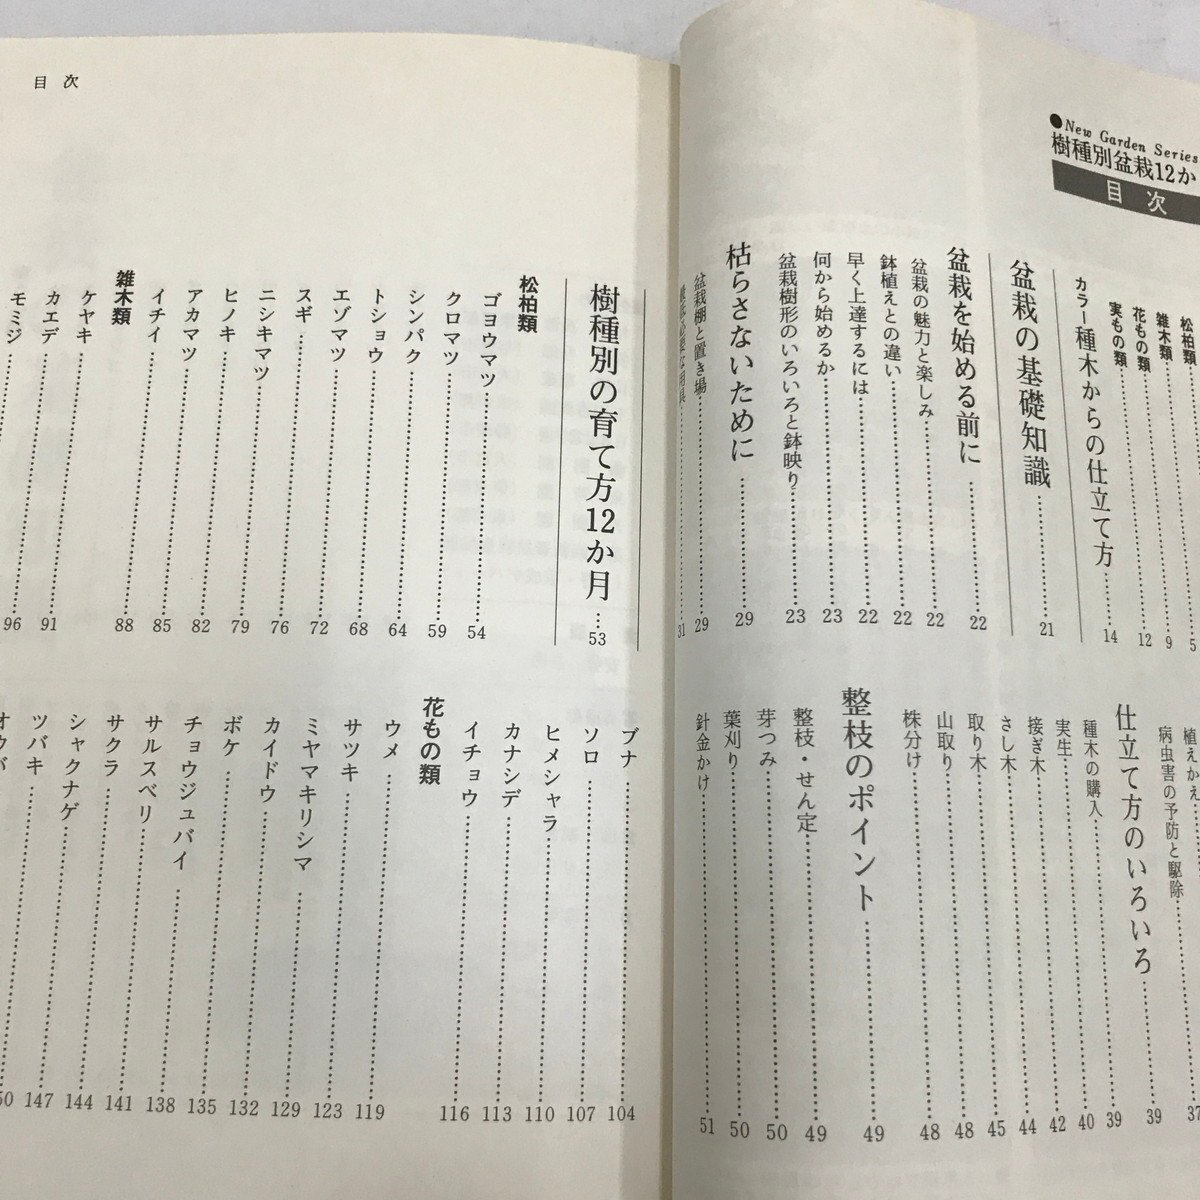 ●New Garden Series
樹種別盆栽12か
目次
松柏類……5
雑木類……9
花もの類……12
実もの類
カラー種木からの仕立て方……14
盆栽の基礎知識……21
盆栽を始める前に……22
盆栽の魅力と楽しみ……22
鉢植えとの違い……22
早く上達するには……22
何から始めるか……23
盆栽樹形のいろいろと鉢映り……23
枯らさないために……29
盆栽棚と置き場……29
31
植えかえ
病虫害の予防と駆除……37
仕立て方のいろいろ……39
種木の購入……39
実生……40
接ぎ木……42
さし木……44
取り木……45
山取り……48
株分け……48
整枝のポイント……49
整枝・せん定……49
芽つみ……50
葉刈り……50
針金かけ……51
目次
樹種別の育て方12か月……53
松柏類
ゴヨウマツ……54
クロマツ……59
シンパク……64
トショウ……68
エゾマツ……72
スギ……76
ニシキマツ……79
ヒノキ……82
アカマツ……85
イチイ……88
雑木類
ケヤキ……91
カエデ……96
モミジ
ブナ……104
ソロ……107
ヒメシャラ……110
カナシデ……113
イチョウ……116
花もの類
ウメ……119
サツキ……123
ミヤマキリシマ……129
カイドウ……132
ボケ……135
チョウジュバイ……138
サルスベリ……141
サクラ……144
シャクナゲ……147
ツバキ……50